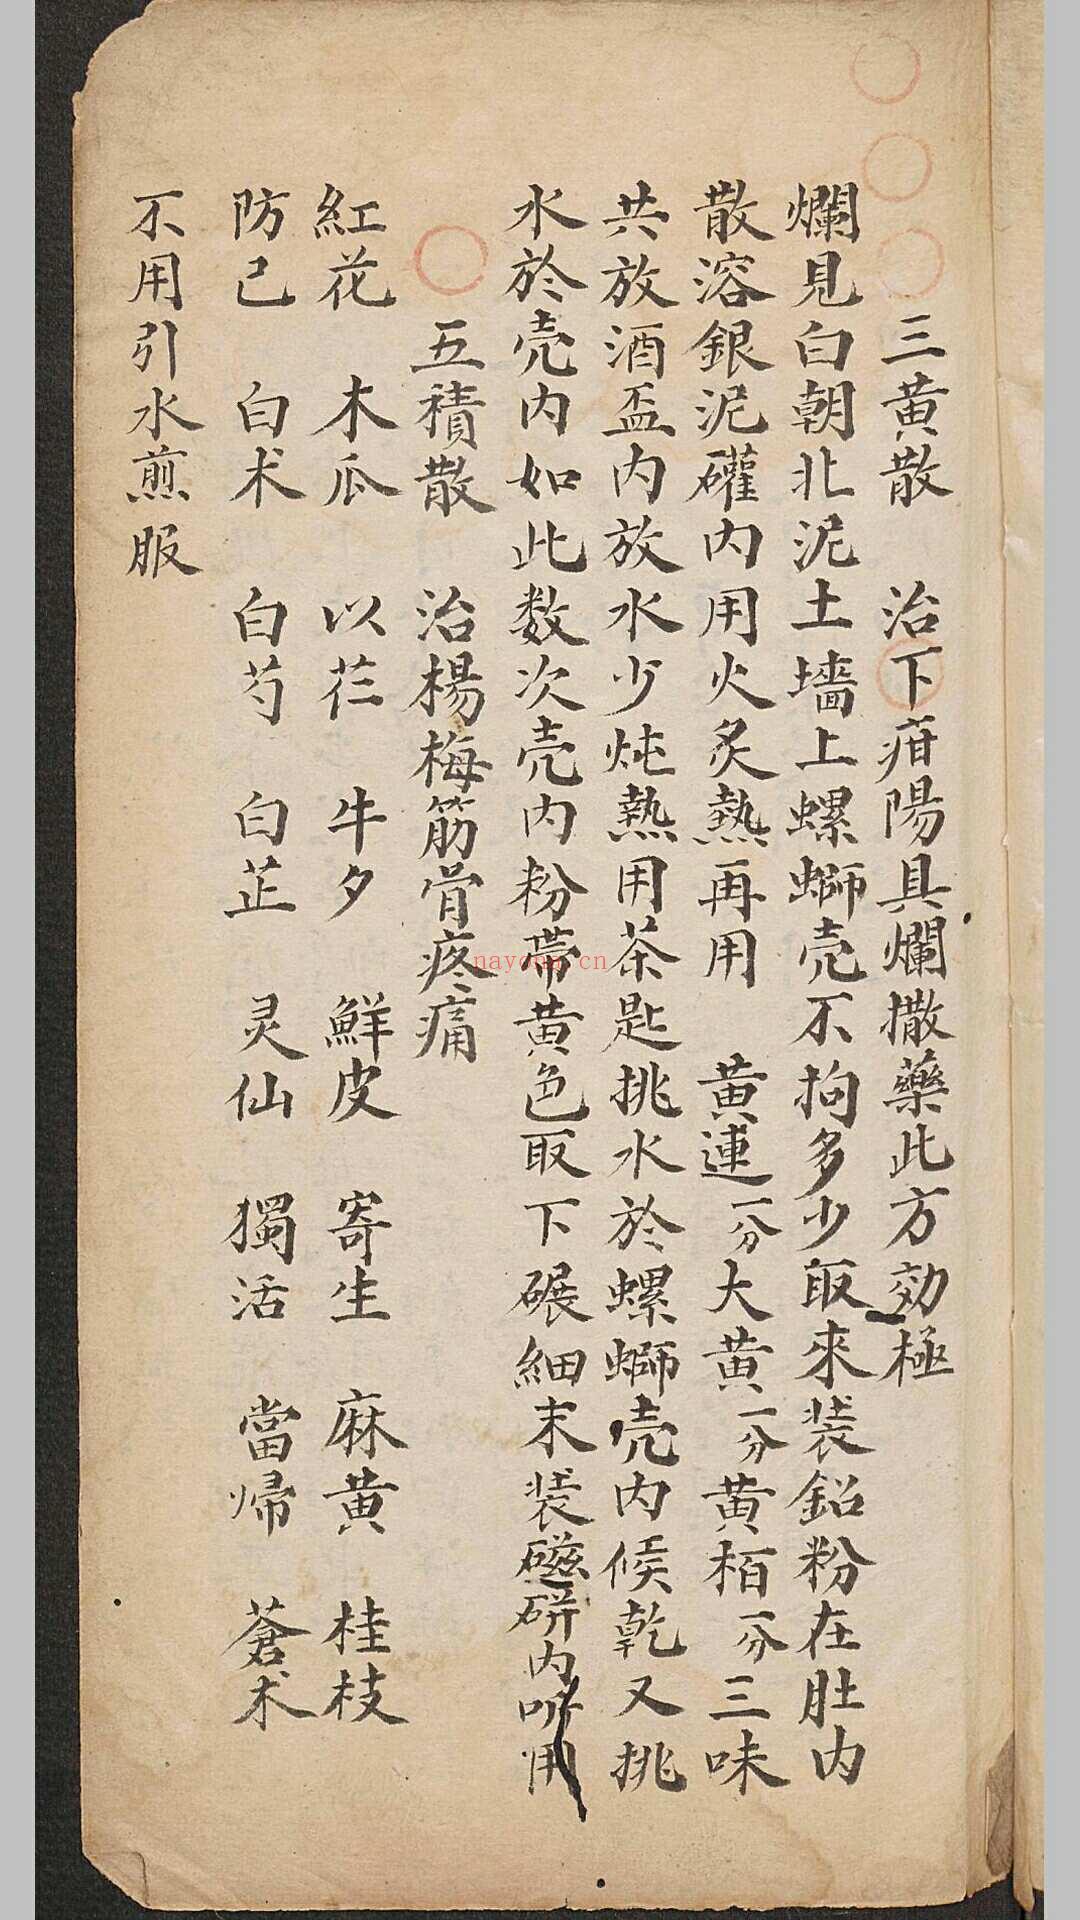 三黄散 治下疳陽具爛撒藥此方効極
爛見白朝北泥土墻上螺螄壳不拘多少取來装鉛粉在肚内
散溶銀泥礶内用火炙熱再用 黄連一分大黄一分黄栢一分三味
共放酒盃内放水少炖熱用茶匙挑水於螺螄壳内候乾又挑
水於壳内如此数次壳内粉帶黄色取下碾細末装磁硑内听用
五積散 治楊梅筋骨疼痛
紅花 木瓜 以苡 牛夕 鮮皮 寄生 麻黄 桂枝
防己 白术 白芍 白芷 灵仙 獨活 當帰 蒼术
不用引水煎服
nayona.cn